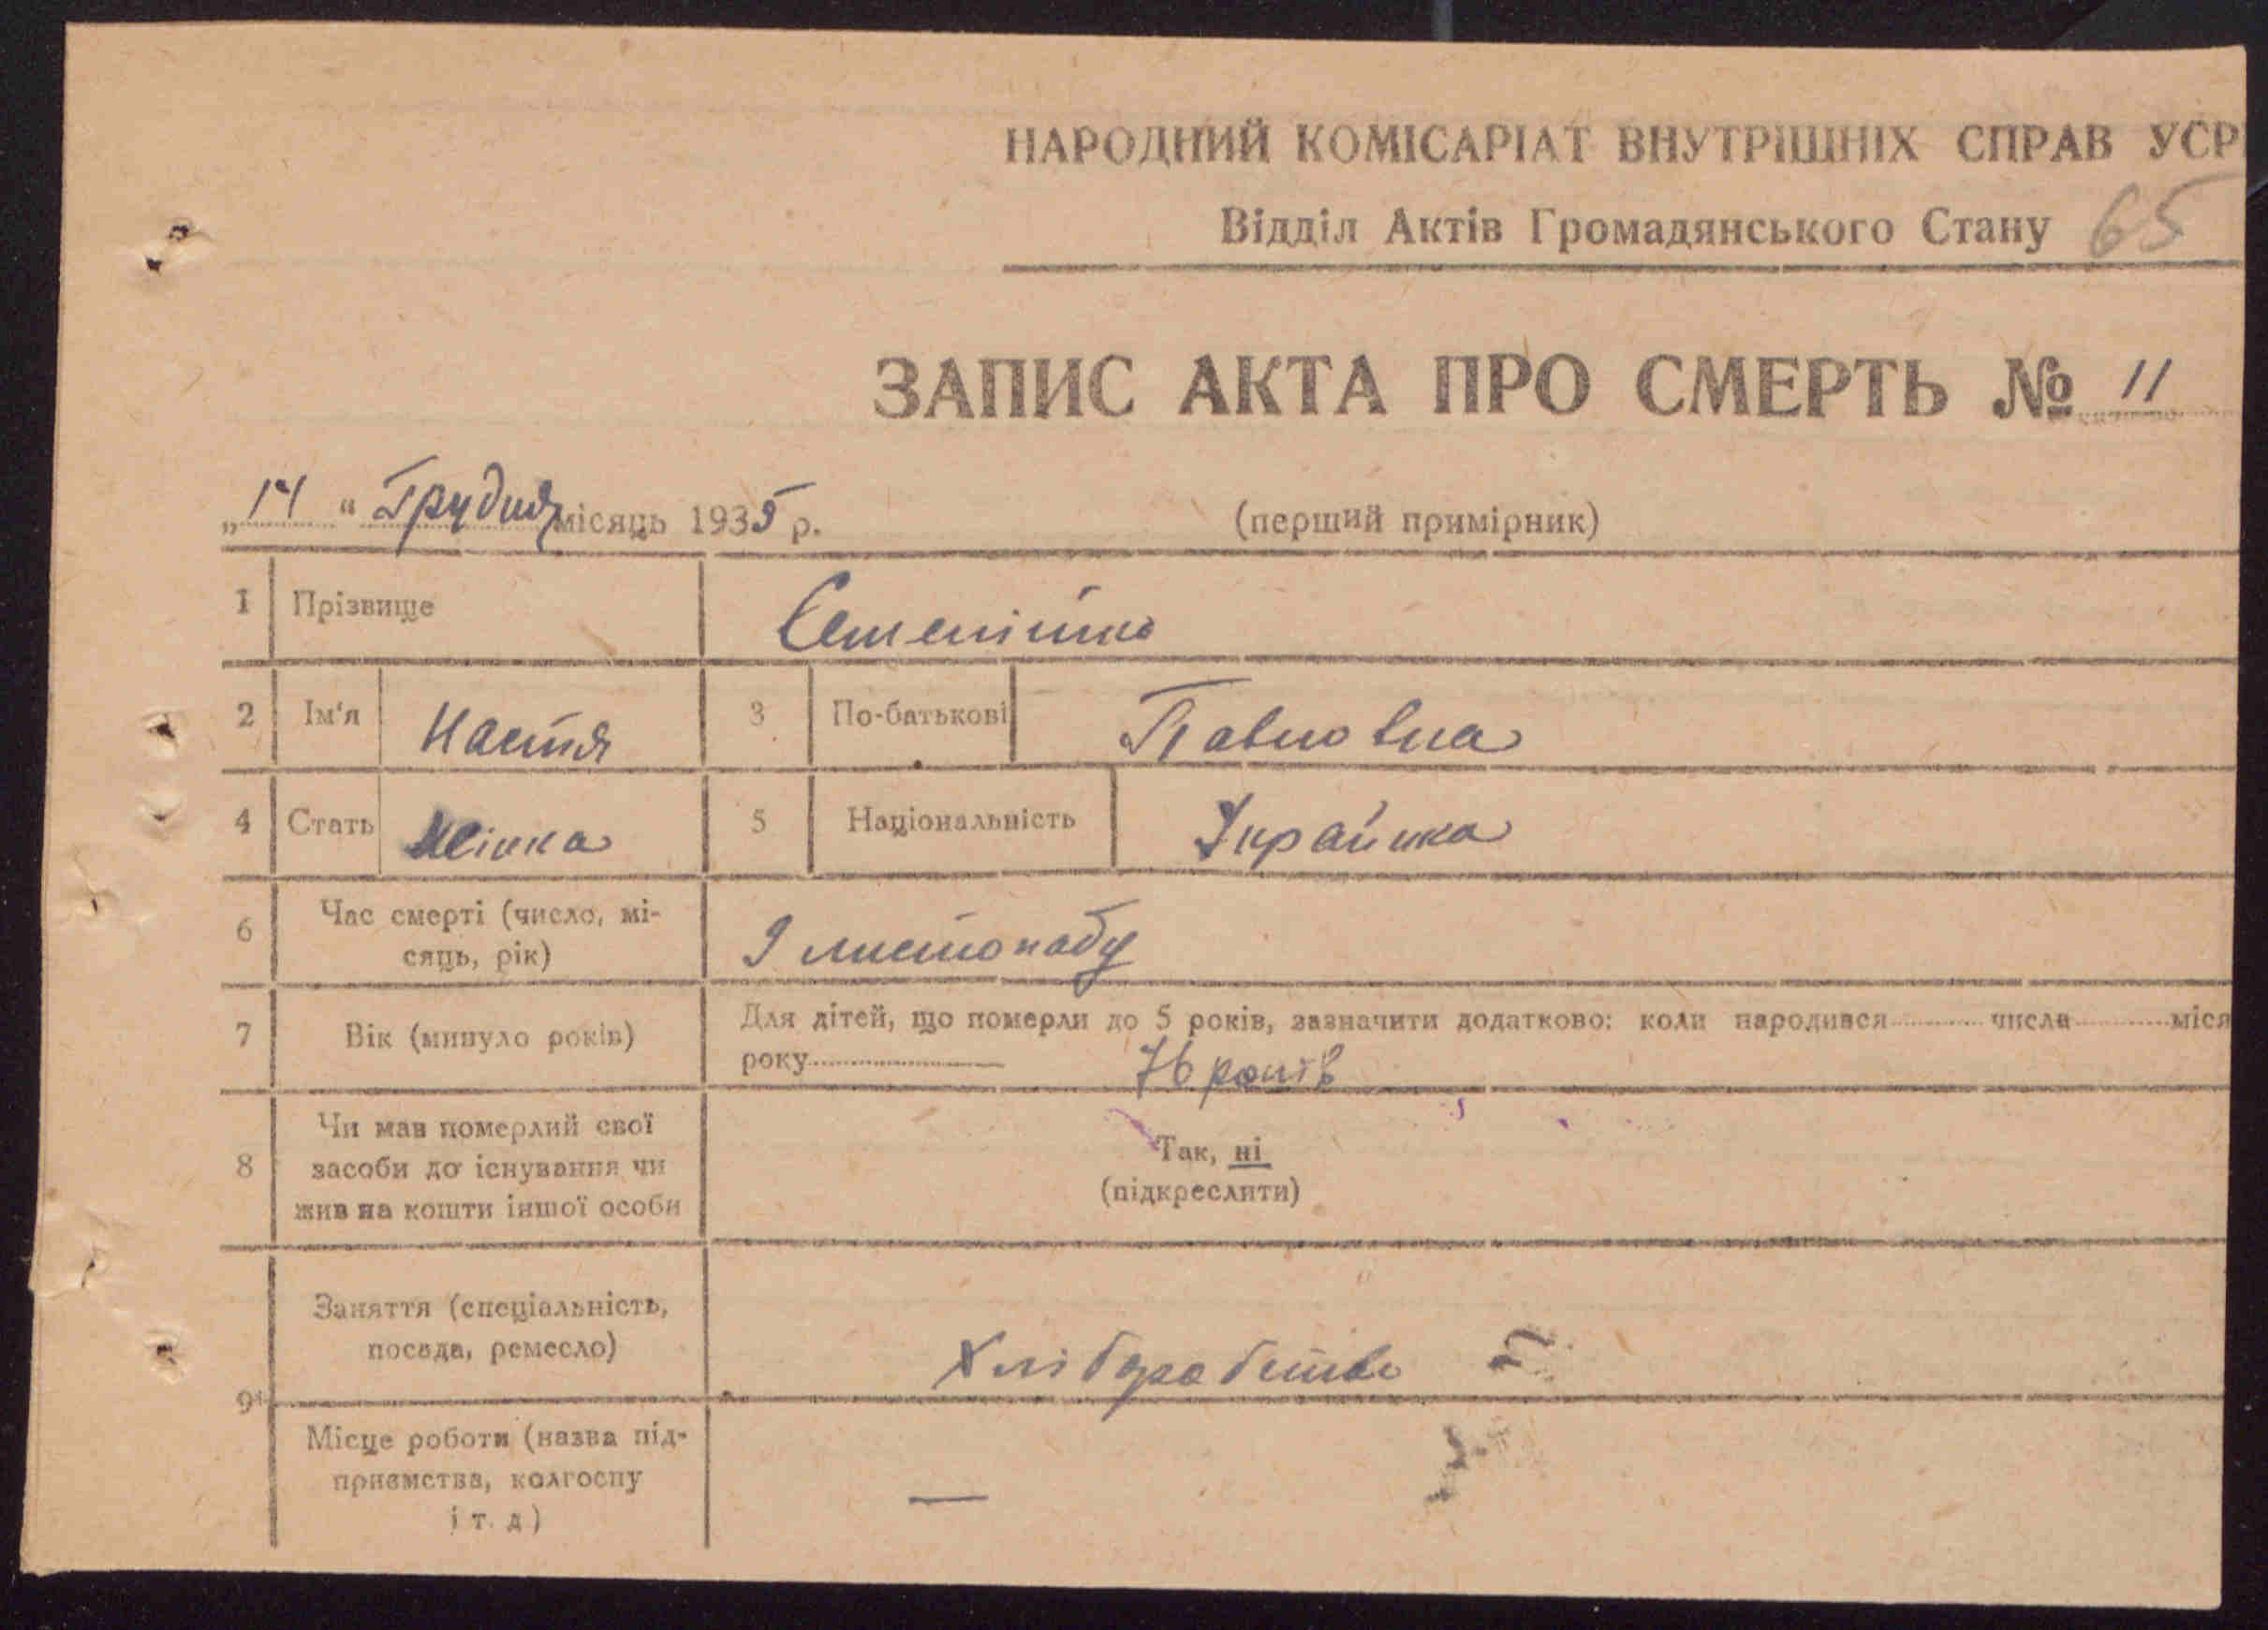 НАРОДНИЙ КОМІСАРІАТ ВНУТРІШНІХ СПРАВ УСР
Відділ Актів Громадянського Стану 65
ЗАПИС АКТА ПРО СМЕРТЬ № 11
„14“ Грудня місяць 1935 р. (перший примірник)
1 Прізвище
2 Ім'я Настя 3 По-батькові Павловна
4 Стать Жінка 5 Національність Українка
6 Час смерті (число, мі-
сяць, рік) 9 листопаду
7 Вік (минуло років) Для дітей, що померли до 5 років, зазначити додатково: коли народився числа міся
року 76 років
8 Чи мав померлий свої
засоби до існування чи
жив на кошти іншої особи
Так, ні
(підкреслити)
9 Заняття (спеціальність,
посада, ремесло) Хліборобство
Місце роботи (назва під-
приємства, колгоспу
і т. д) —